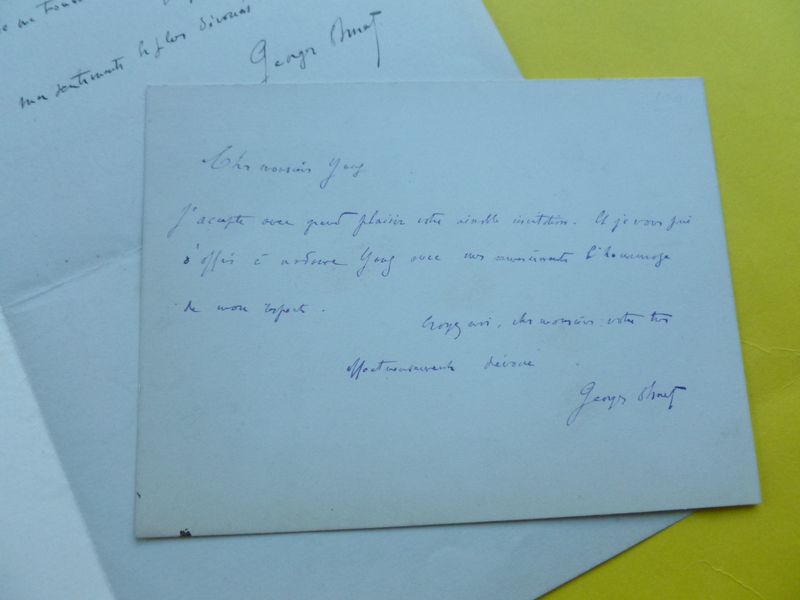 mes sentiments les plus dévoués
Georges Ohnet
Cher monsieur Yung
J'accepte avec grand plaisir votre aimable invitation. Et je vous prie
d'offrir à madame Yung avec mes remerciements l'hommage
de mon respect.
Croyez moi, cher monsieur votre très
affectueusement dévoué
Georges Ohnet